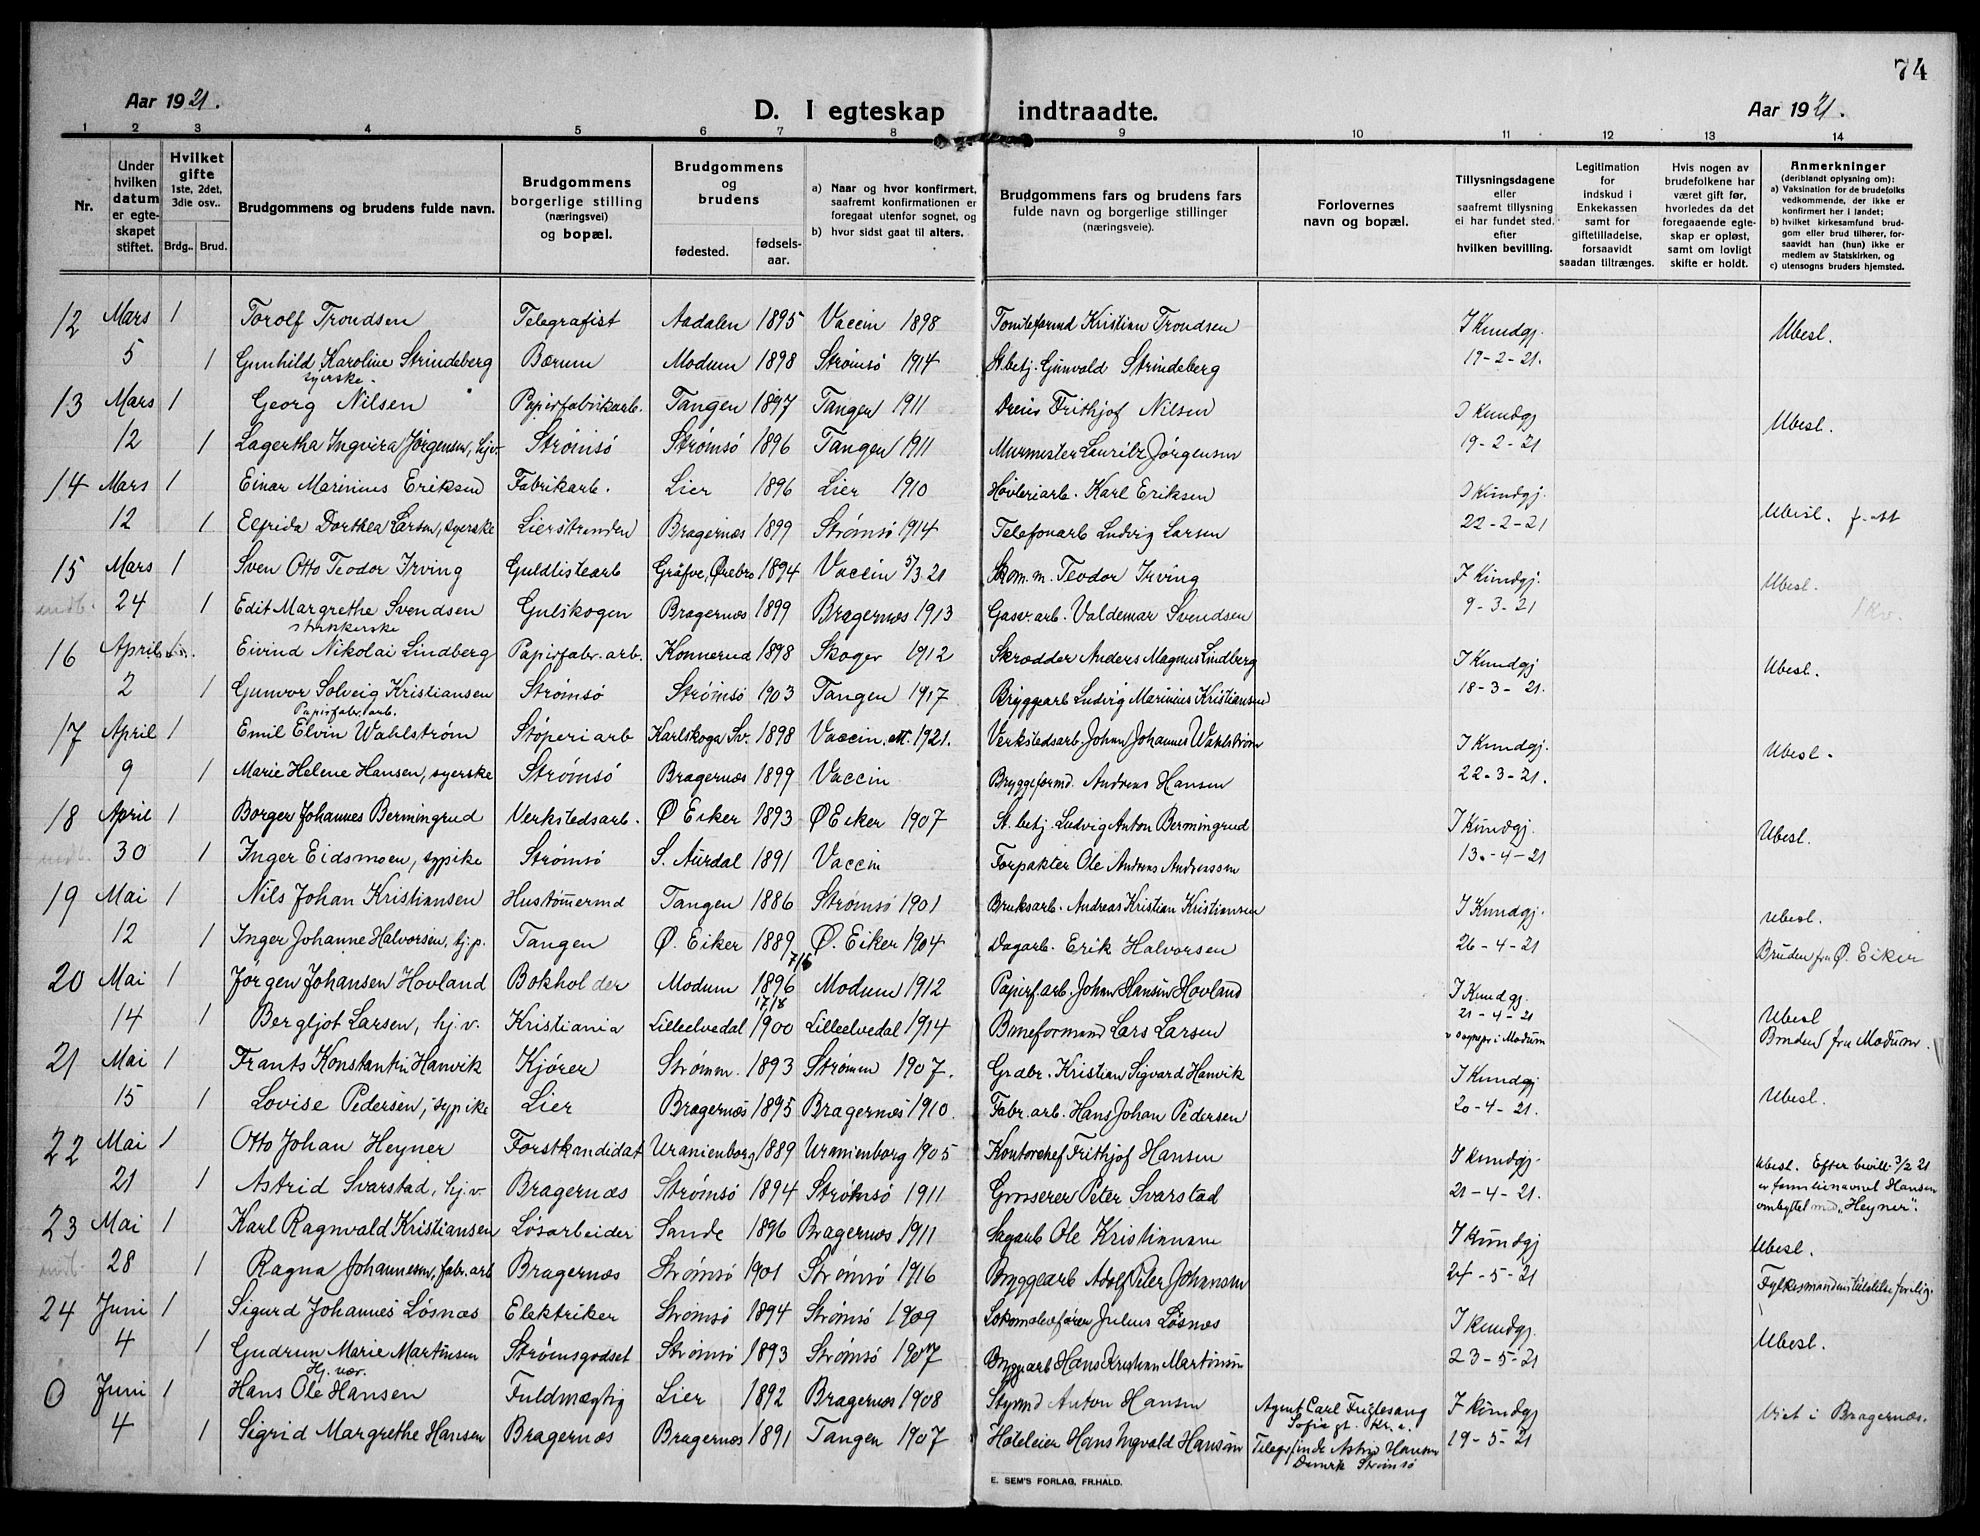 74
Aar 1921.
D. I egteskap indtraadte.
Aar 1921.
1 2 3 4 5 6 7 8 9 10 11 12 13 14
Nr.
Under hvilken datum er egteskapet stiftet.
Hvilket gifte 1ste, 2det, 3die osv..
Brdg.. Brud.
Brudgommens og brudens fulde navn.
Brudgommens borgerlige stilling (næringsvei) og bopæl.
Brudgommens og brudens
fødested. fødsels-aar.
a) Naar og hvor konfirmert, saafremt konfirmationen er foregaat utenfor sognet, og
b) hvor sidst gaat til alters.
Brudgommens fars og brudens fars fulde navn og borgerlige stillinger (næringsveie).
Forlovernes navn og bopæl.
Tillysningsdagene eller saafremt tillysning ei har fundet sted. efter hvilken bevilling.
Legitimation for indskud i Enkekassen samt for giftetilladelse, forsaavidt saadan tiltrænges.
Hvis nogen av brudefolkene har været gift før, hvorledes da det foregaaende egteskap er opløst, samt om lovligt skifte er holdt.
Anmerkninger (deriblandt oplysning om):
a) Vaksination for de brudefolks vedkommende, der ikke er konfirmert her i landet;
b) hvilket kirkesamfund brudgom eller brud tilhører, forsaavidt han (hun) ikke er medlem av Statskirken, og
c) utensogns bruders hjemsted.
12 Mars 1 Torolf Trondsen Telegrafist Aadalen 1895 Vaccin 1898 Tomteformd Kristian Trondsen I Kundgj. Ubesl.
5 1 Gunhild Karoline Strindeberg Bærum Modum 1898 Strømsø 1914 St.betj. Gunvald Strindeberg 19-2-21.
syerske
13 Mars 1 Georg Nilsen Papirfabrikarb. Tangen 1897 Tangen 1911 Dreier Frithjof Nilsen I Kundgj. Ubesl.
12 1 Lagertha Ingvira Jørgensen, hjv. Strømsø Strømsø 1896 Tangen 1911 Murmester Lauritz Jørgensen 19-2-21
14 Mars 1 Einar Marinius Eriksen Fabrikarb. Lier 1896 Lier 1910 Høvleriarb. Karl Eriksen I Kundgj.
12 1 Elfrida Dorthea Larsen, syerske Lierstranden Bragernæs 1899 Strømsø 1914 Telefonarb Ludvig Larsen 22-2-21 Ubesl. f. att
15 Mars 1 Sven Otto Teodor Irving Guldlistearb Gräfve, Ørebro 1894 Vaccin 5/3 21 Skom.m. Teodor Irving I Kundgj. Ubesl.
24 1 Edit Margrethe Svendsen Gulskogen Bragernæs 1899 Bragernæs 1913 Gasv.arb. Valdemar Svendsen 9-3-21
strikkerske
16 April Eivind Nikolai Lindberg Papirfabr.arb. Konnerud 1898 Skoger 1912 Skrædder Anders Magnus Lindberg I Kundgj Ubesl.
2 1 Gunvor Solveig Kristiansen Strømsø Strømsø 1903 Tangen 1917 Bryggearb Ludvig Marinius Kristiansen 18-3-21.
Papirfabr.arb.
17 April 1 Emil Elvin Wahlstrøm Støperiarb Karlskoga Sv. 1898 Vaccin. att. 1921. Verkstedsarb. Johan Johannes Wahlstrøm I Kundgj. Ubesl.
9 1 Marie Helene Hansen, syerske Strømsø Bragernæs 1899 Vaccin Bryggeformd. Andreas Hansen 22-3-21.
18 April 1 Borger Johannes Bermingrud Verkstedsarb. Ø Eiker 1893 Ø Eiker 1907 St. betj. Ludvig Anton Bermingrud I Kundgj. Ubesl.
30 1 Inger Eidsmoen, sypike Strømsø S. Aurdal 1891 Vaccin Forpakter Ole Andreas Andreassen 13.-4-21
19 Mai 1 Nils Johan Kristiansen Hustømermd Tangen 1886 Strømsø 1901 Bruksarb. Andreas Kristian Kristiansen I Kundgj. Ubesl.
12 1 Inger Johanne Halvorsen, hj.p. Tangen Ø. Eiker 1889 Ø. Eiker 1904 Dagarb. Erik Halvorsen 26-4-21 Bruden fra Ø. Eiker
20 Mai 1 Jørgen Johansen Hovland Bokholder Modum 7/6 1896 Modum 1912 Papirfarb. Johan Hansen Hovland I Kundgj.
14 1 Bergljot Larsen, hj.v. Kristiania Lilleelvedal 17/8 1900 Lilleelvedal 1914 Baneformand Lars Larsen 21-4-21 Ubesl
i Modum Bruden fra Modum.
21 Mai 1 Frants Konstantin Hanvik Kjører Strømm. 1893 Strømm 1907. Grdbr. Kristian Sigvard Hanvik I Kundgj
15 1 Lovise Pedersen, sypike Lier Bragernæs 1895 Bragernæs 1910. Fabr.arb. Hans Johan Pedersen 20-4-21. Ubesl.
22 Mai 1 Otto Johan Heyner Forstkandidat Uranienborg 1889 Uranienborg 1905 Kontorchef Frithjof Hansen I Kundgj. Ubesl. Efter bevill. 3/2 21
21 1 Astrid Svarstad, hj.v. Bragernæs Strømsø 1894 Strømsø 1911 Grosserer Peter Svarstad 21-4-21. er familienavnet Hansen
ombyttet med "Heyner".
23 Mai 1 Karl Ragnvald Kristiansen Løsarbeider Sande 1896 Bragernæs 1911 Sagarb Ole Kristiansen I Kundgj Ubesl.
28 1 Ragna Johannesen, fabr.arb Bragernæs Strømsø 1901 Strømsø 1916 Bryggearb Adolf Peter Johansen 24-5-21 Fylkesmandens tillatelse forelig.
24 Juni 1 Sigurd Johannes Løsnæs Elektriker Strømsø 1894 Strømsø 1909 Lokomotivfører Julius Løsnæs I Kundgj.
4 1 Gudrun Marie Martinsen Strømsgodset Strømsø 1893 Strømsø 1907 Bryggearb Hans Kristian Martinsen 23-5-21 Ubesl.
Hj. vær.
0 Juni 1 Hans Ole Hansen Fuldmægtig Lier 1892 Bragernæs 1908 Styrmd Anton Hansen Agent Carl Fuglesang I Kundgj Viet i Bragernæs.
Sofiagt. Kr.a.
4 1 Sigrid Margrethe Hansen Bragernæs Bragernæs 1891 Tangen 1907 Hoteleier Hans Ingvald Hansen Astrid Hansen 19-5-21
Strømsø
E. SEM'S FORLAG, FR.HALD.